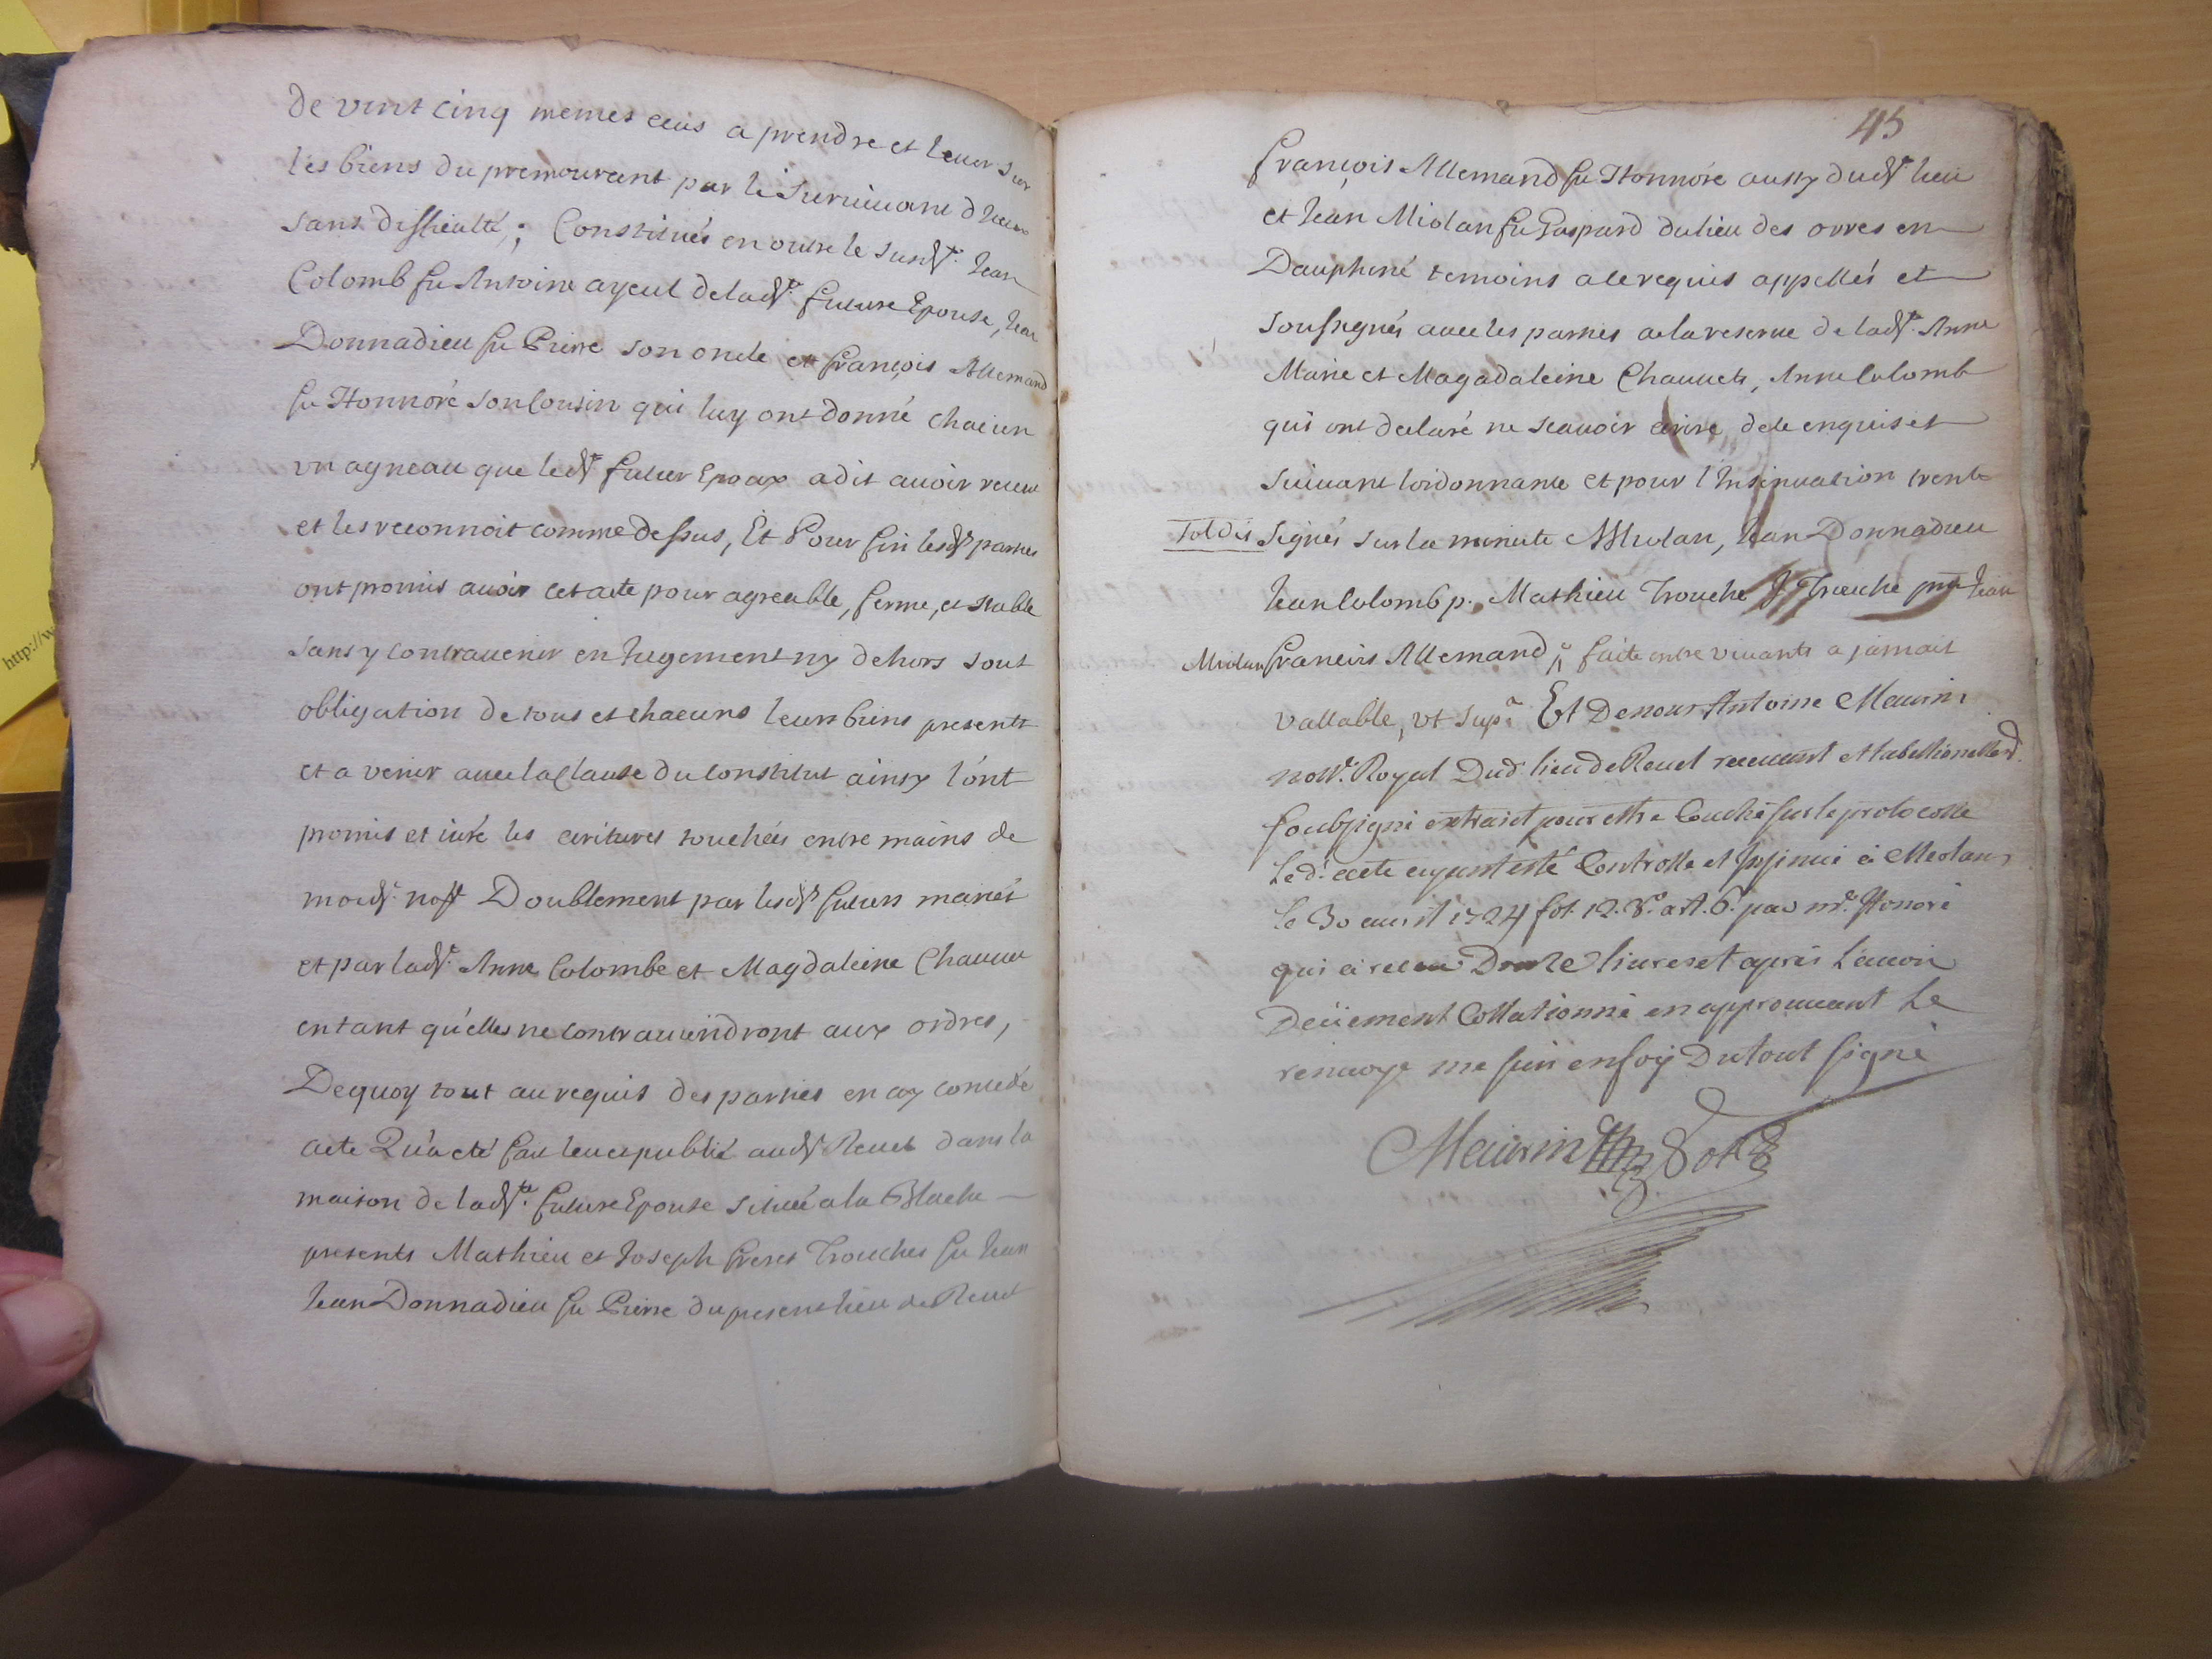 de vint cinq memes ecus a prendre et lever sur
les biens du premourant par le Survivant d'iceux
sans difficulté ; Constitués en outre le susdt. Jean
Colomb fu Antoine ayeul de ladte. future Epouse, Jean
Donnadieu fu Pierre son oncle et françois Allemand
fu Honnoré son Cousin qui luy ont donné chacun
un agneau que ledt futur Epoux a dit avoir receu
et les reconnoit comme dessus, Et Pour fin lesdts parties
ont promis avoir cet acte pour agreable, ferme, et stable
sans y contravenir en Jugement ny dehors sout
obligation de tous et chacuns leurs biens presents
et a venir avec la Clause du Constitut ainsy l'ont
promis et juré les ecritures touchées entre mains de
moidt. nore Doublement par lesdts futurs mariés
et par ladte. Anne Colombe et Magdaleine Chauvet
en tant qu'elles ne contraviendront aux ordres,
Dequoy tout au requis des parties en ay concedé
acte Qu'a eté fau leu et publié audt Revel dans la
maison de ladte. future Epouse située a la Blache
presents Mathieu et Joseph freres Trouches fu Jean
Jean Donnadieu fu Pierre du present lieu de Revel
45
françois Allemand fu Honnoré aussy dudt. lieu
et Jean Miolan fu Gaspard du lieu des orres en
Dauphiné temoins a le requis appellés et
sousignés avec les parties a la reserve de ladte. Anne
Marie et Magadaleine Chauvets, Anne Colomb
qui ont declaré ne scavoir ecrire de le enquis et
suivant l'ordonnance et pour l'Insinuation trente
sols dis Signés sur la minute Miolan, Jean Donnadieu
Jean Colomb p. Mathieu Trouche J Treuche pnt Jean
Miolan francois Allemand faite entre vivants a jamait
vallable, vt supa. Et De nous Antoine Meurin
nore. Royal Dud. lieu de Revel recevant et tabellionelled
soubsigné extraict pour estre Couché sur le protocolle
Led. acte ayant esté Controllé et Insinué a Meolans
le 30 avril 1724 fol. 12. Vo. art. 6. par me. Honoré
qui a receu Douze livres et apres L'avoir
Deüement Collationné en approuvant Le
renvoye me suis en foy Du tout signé
Meurin